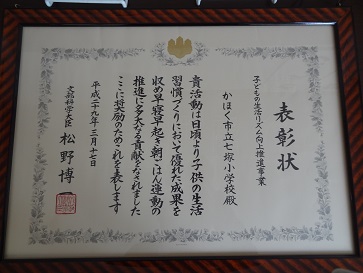 表彰状
子どもの生活リズム向上推進事業
かほく市立七塚小学校殿
貴活動は日頃より子供の生活
習慣づくりにおいて優れた成果を
収め早寝早起き朝ごはん運動の
推進に多大なる貢献をなされました
ここに将大励のためこれを表します
平成二十九年三月十七日
文部科学大臣 松野博一